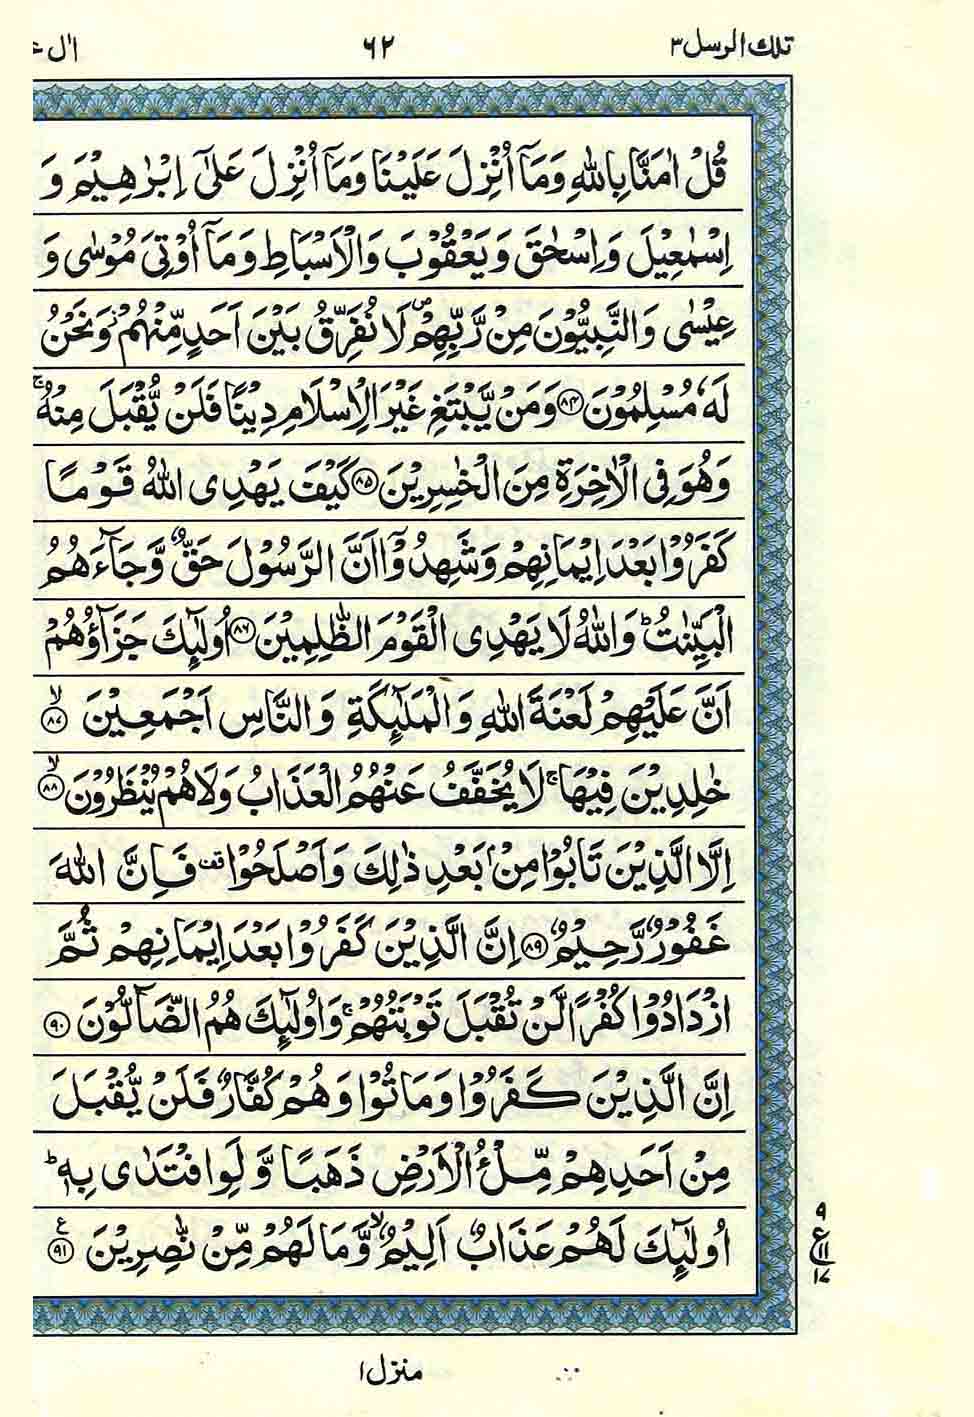 تلك الرسل ٣
٦٢
اٰل ع
قُلْ اٰمَنَّا بِاللّٰهِ وَمَاۤ اُنْزِلَ عَلَيْنَا وَمَاۤ اُنْزِلَ عَلٰۤى اِبْرٰهِيْمَ وَ
اِسْمٰعِيْلَ وَاِسْحٰقَ وَيَعْقُوْبَ وَالْاَسْبَاطِ وَمَاۤ اُوْتِىَ مُوْسٰى وَ
عِيْسٰى وَالنَّبِيُّوْنَ مِنْ رَّبِّهِمْ ۖ لَا نُفَرِّقُ بَيْنَ اَحَدٍ مِّنْهُمْ ۫ وَنَحْنُ
لَهٗ مُسْلِمُوْنَ ﴿۸۴﴾ وَمَنْ يَّبْتَغِ غَيْرَ الْاِسْلَامِ دِيْنًا فَلَنْ يُّقْبَلَ مِنْهُ ۚ
وَهُوَ فِى الْاٰخِرَةِ مِنَ الْخٰسِرِيْنَ ﴿۸۵﴾ كَيْفَ يَهْدِى اللّٰهُ قَوْمًا
كَفَرُوْا بَعْدَ اِيْمَانِهِمْ وَشَهِدُوْۤا اَنَّ الرَّسُوْلَ حَقٌّ وَّجَآءَهُمُ
الْبَيِّنٰتُ ؕ وَاللّٰهُ لَا يَهْدِى الْقَوْمَ الظّٰلِمِيْنَ ﴿۸۶﴾ اُولٰٓئِكَ جَزَآؤُهُمْ
اَنَّ عَلَيْهِمْ لَعْنَةَ اللّٰهِ وَالْمَلٰٓئِكَةِ وَالنَّاسِ اَجْمَعِيْنَ ۙ ﴿۸۷﴾
خٰلِدِيْنَ فِيْهَا ۚ لَا يُخَفَّفُ عَنْهُمُ الْعَذَابُ وَلَا هُمْ يُنْظَرُوْنَ ۙ ﴿۸۸﴾
اِلَّا الَّذِيْنَ تَابُوْا مِنْۢ بَعْدِ ذٰلِكَ وَاَصْلَحُوْا قف فَاِنَّ اللّٰهَ
غَفُوْرٌ رَّحِيْمٌ ﴿۸۹﴾ اِنَّ الَّذِيْنَ كَفَرُوْا بَعْدَ اِيْمَانِهِمْ ثُمَّ
ازْدَادُوْا كُفْرًا لَّنْ تُقْبَلَ تَوْبَتُهُمْ ۚ وَاُولٰٓئِكَ هُمُ الضَّآلُّوْنَ ﴿۹۰﴾
اِنَّ الَّذِيْنَ كَفَرُوْا وَمَاتُوْا وَهُمْ كُفَّارٌ فَلَنْ يُّقْبَلَ
مِنْ اَحَدِهِمْ مِّلْءُ الْاَرْضِ ذَهَبًا وَّلَوِ افْتَدٰى بِهٖ ؕ
اُولٰٓئِكَ لَهُمْ عَذَابٌ اَلِيْمٌ ۙ وَّمَا لَهُمْ مِّنْ نّٰصِرِيْنَ ع ﴿۹۱﴾
۹
ع ۱۱
۱۷
منزل ۱